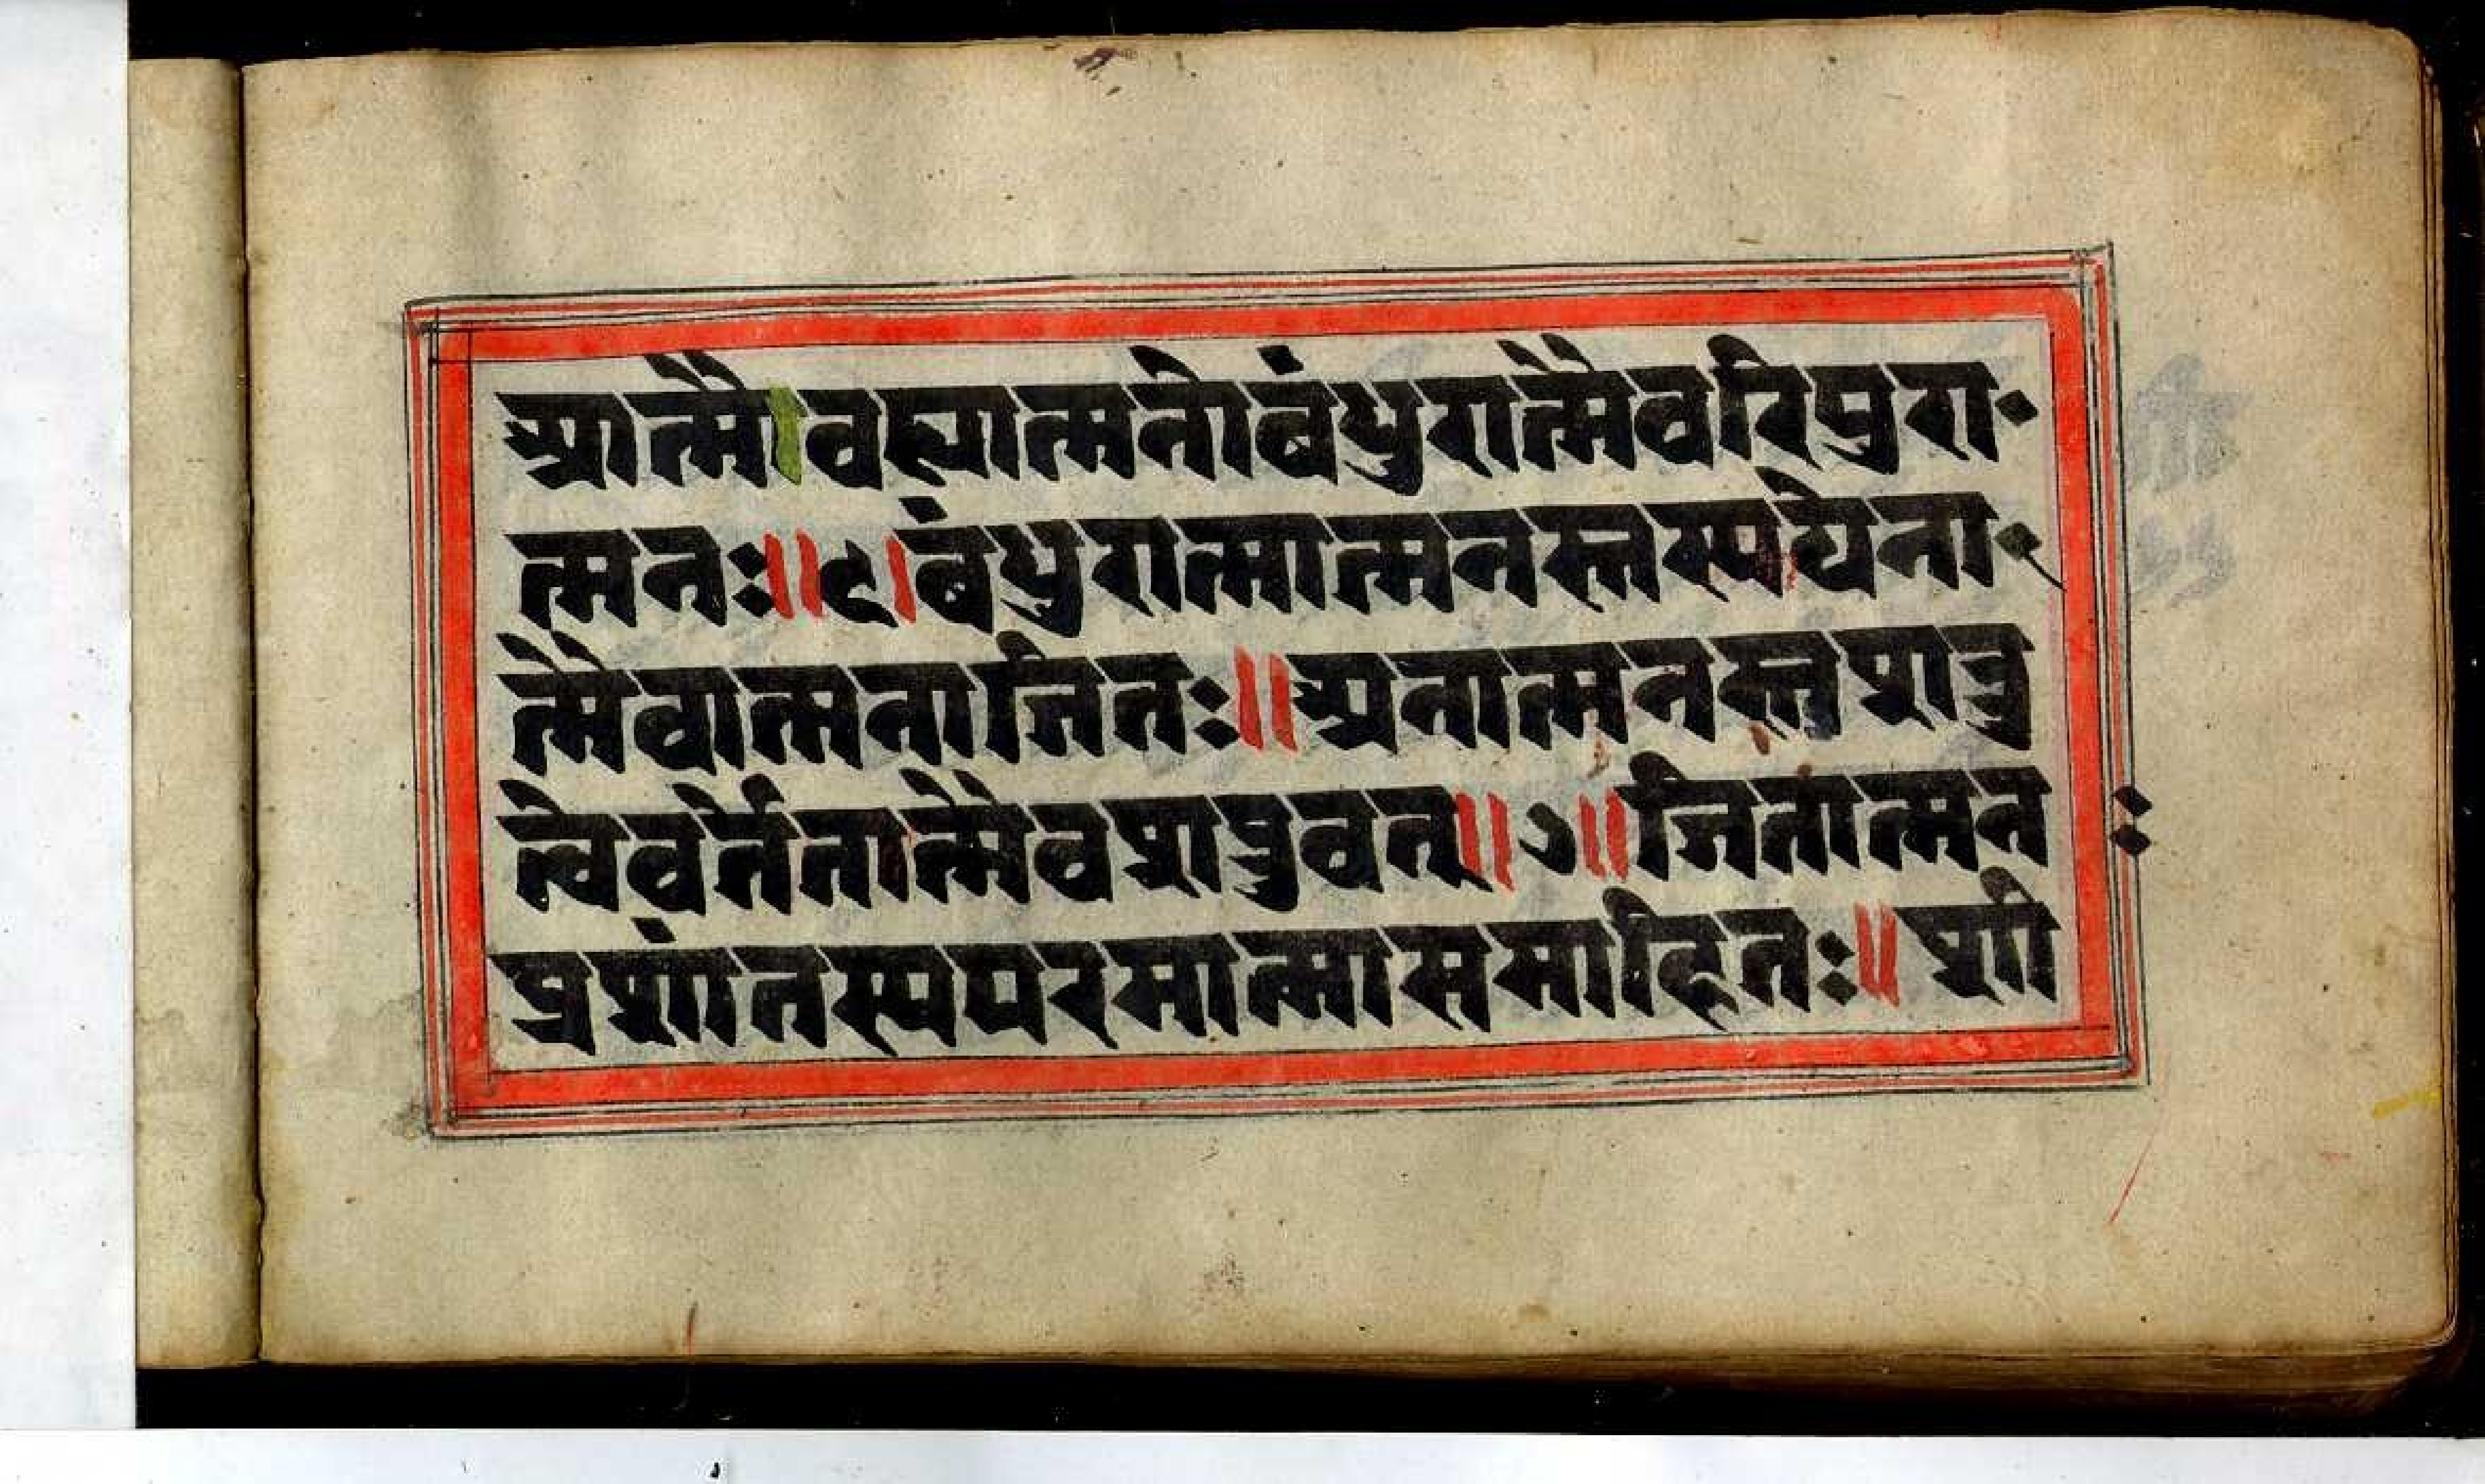 आत्मैवह्यात्मनोबंधुरात्मैवरिपुरा
त्मनः॥५।बंधुरात्मात्मनस्तस्ययेना
त्मैवात्मनाजितः॥अनात्मनस्तुशत्रु
त्वेवर्तेतात्मैवशत्रुवत्॥७॥जितात्मनः
प्रशांतस्यपरमात्मासमाहितः॥शी